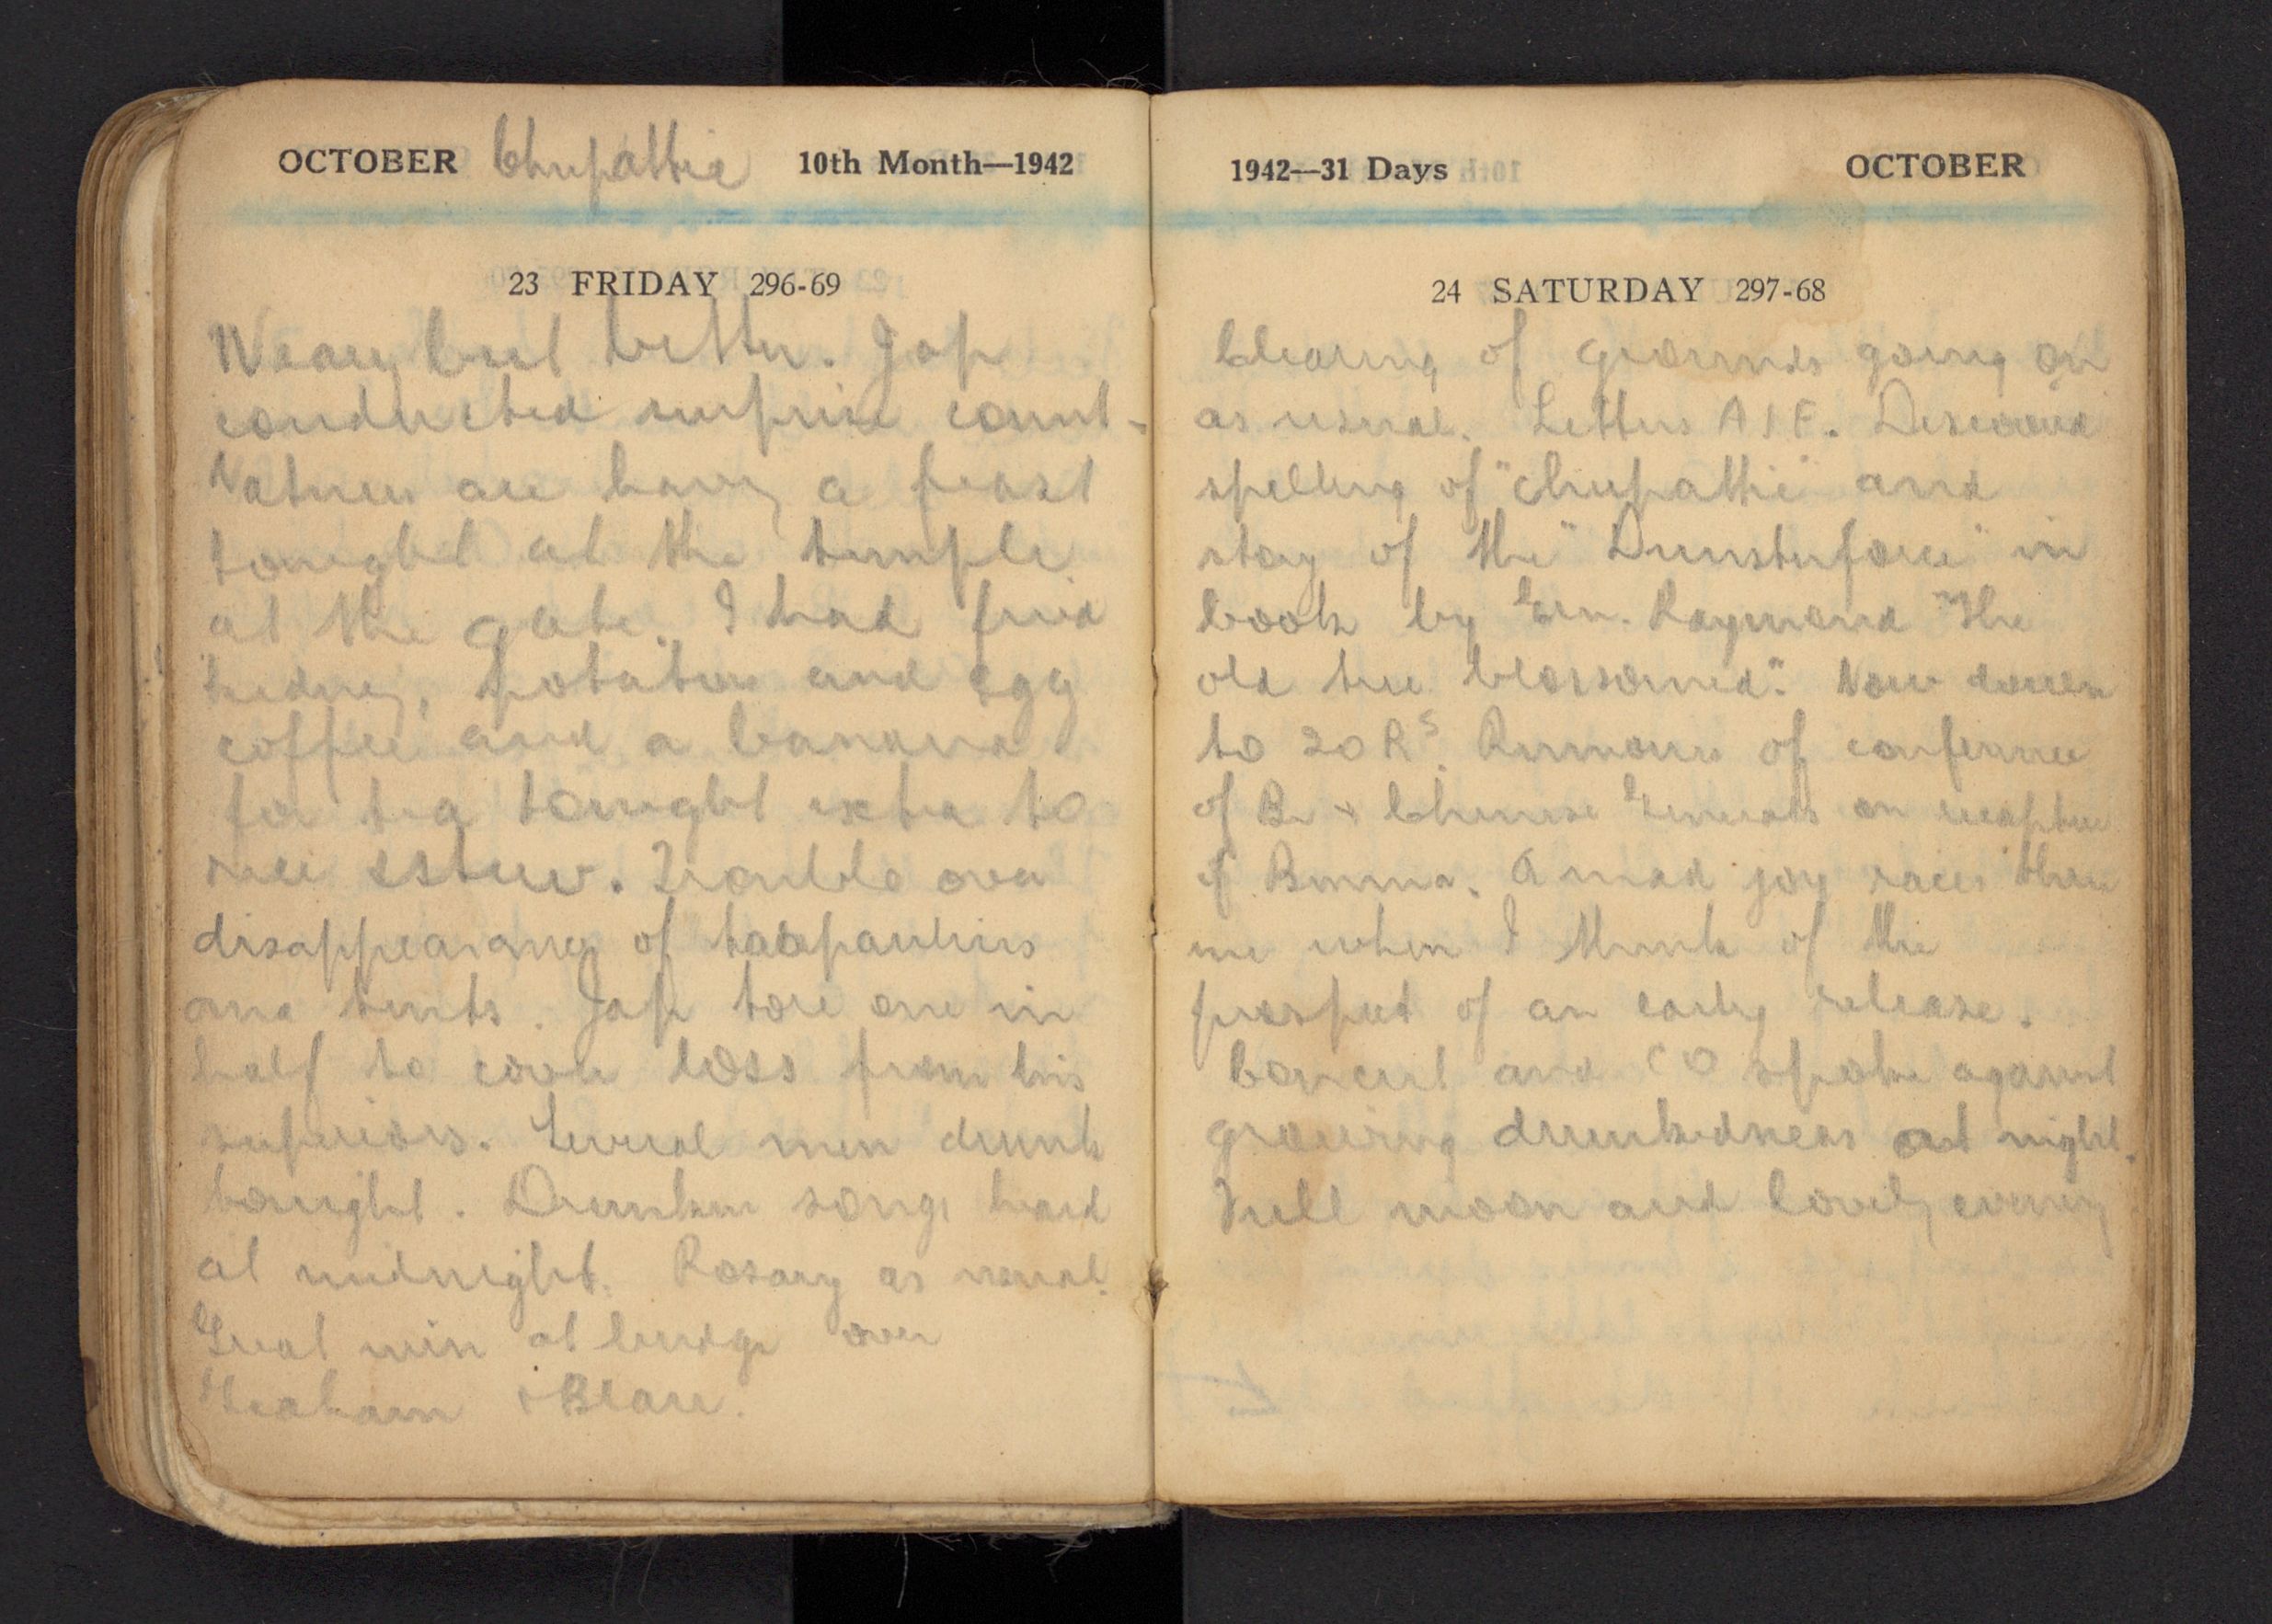 OCTOBER Chupattie 10th Month—1942
23 FRIDAY 296-69
Weary but better. Jap
conducted surprise count.
Natives are having a feast
tonight at the temple
at the gate. I had fried
kidney, potatoes and egg
coffee and a banana
for tea tonight extra to
rice & stew. Trouble over
disappearance of tarpaulins
and tents. Jap tore one in
half to cover loss from his
superiors. Several men drunk
tonight. Drunken songs heard
at midnight. Rosary as usual.
Great win at bridge over
& Blare.
1942—31 Days OCTOBER
24 SATURDAY 297-68
Clearing of grounds going on
as usual. Letters AIF. Discovered
spelling of "chupattie" and
story of the "Dunsterforce" in
book by Ern. Raymond "The
old tree blossomed". Now down
to 20 Rs. Rumours of conference
of Br & Chinese Generals on recapture
of Burma. A mad joy races thru
me when I think of the
prospect of an early release.
Concert and CO spoke against
growing drunkedness at night.
Full moon and lovely evening